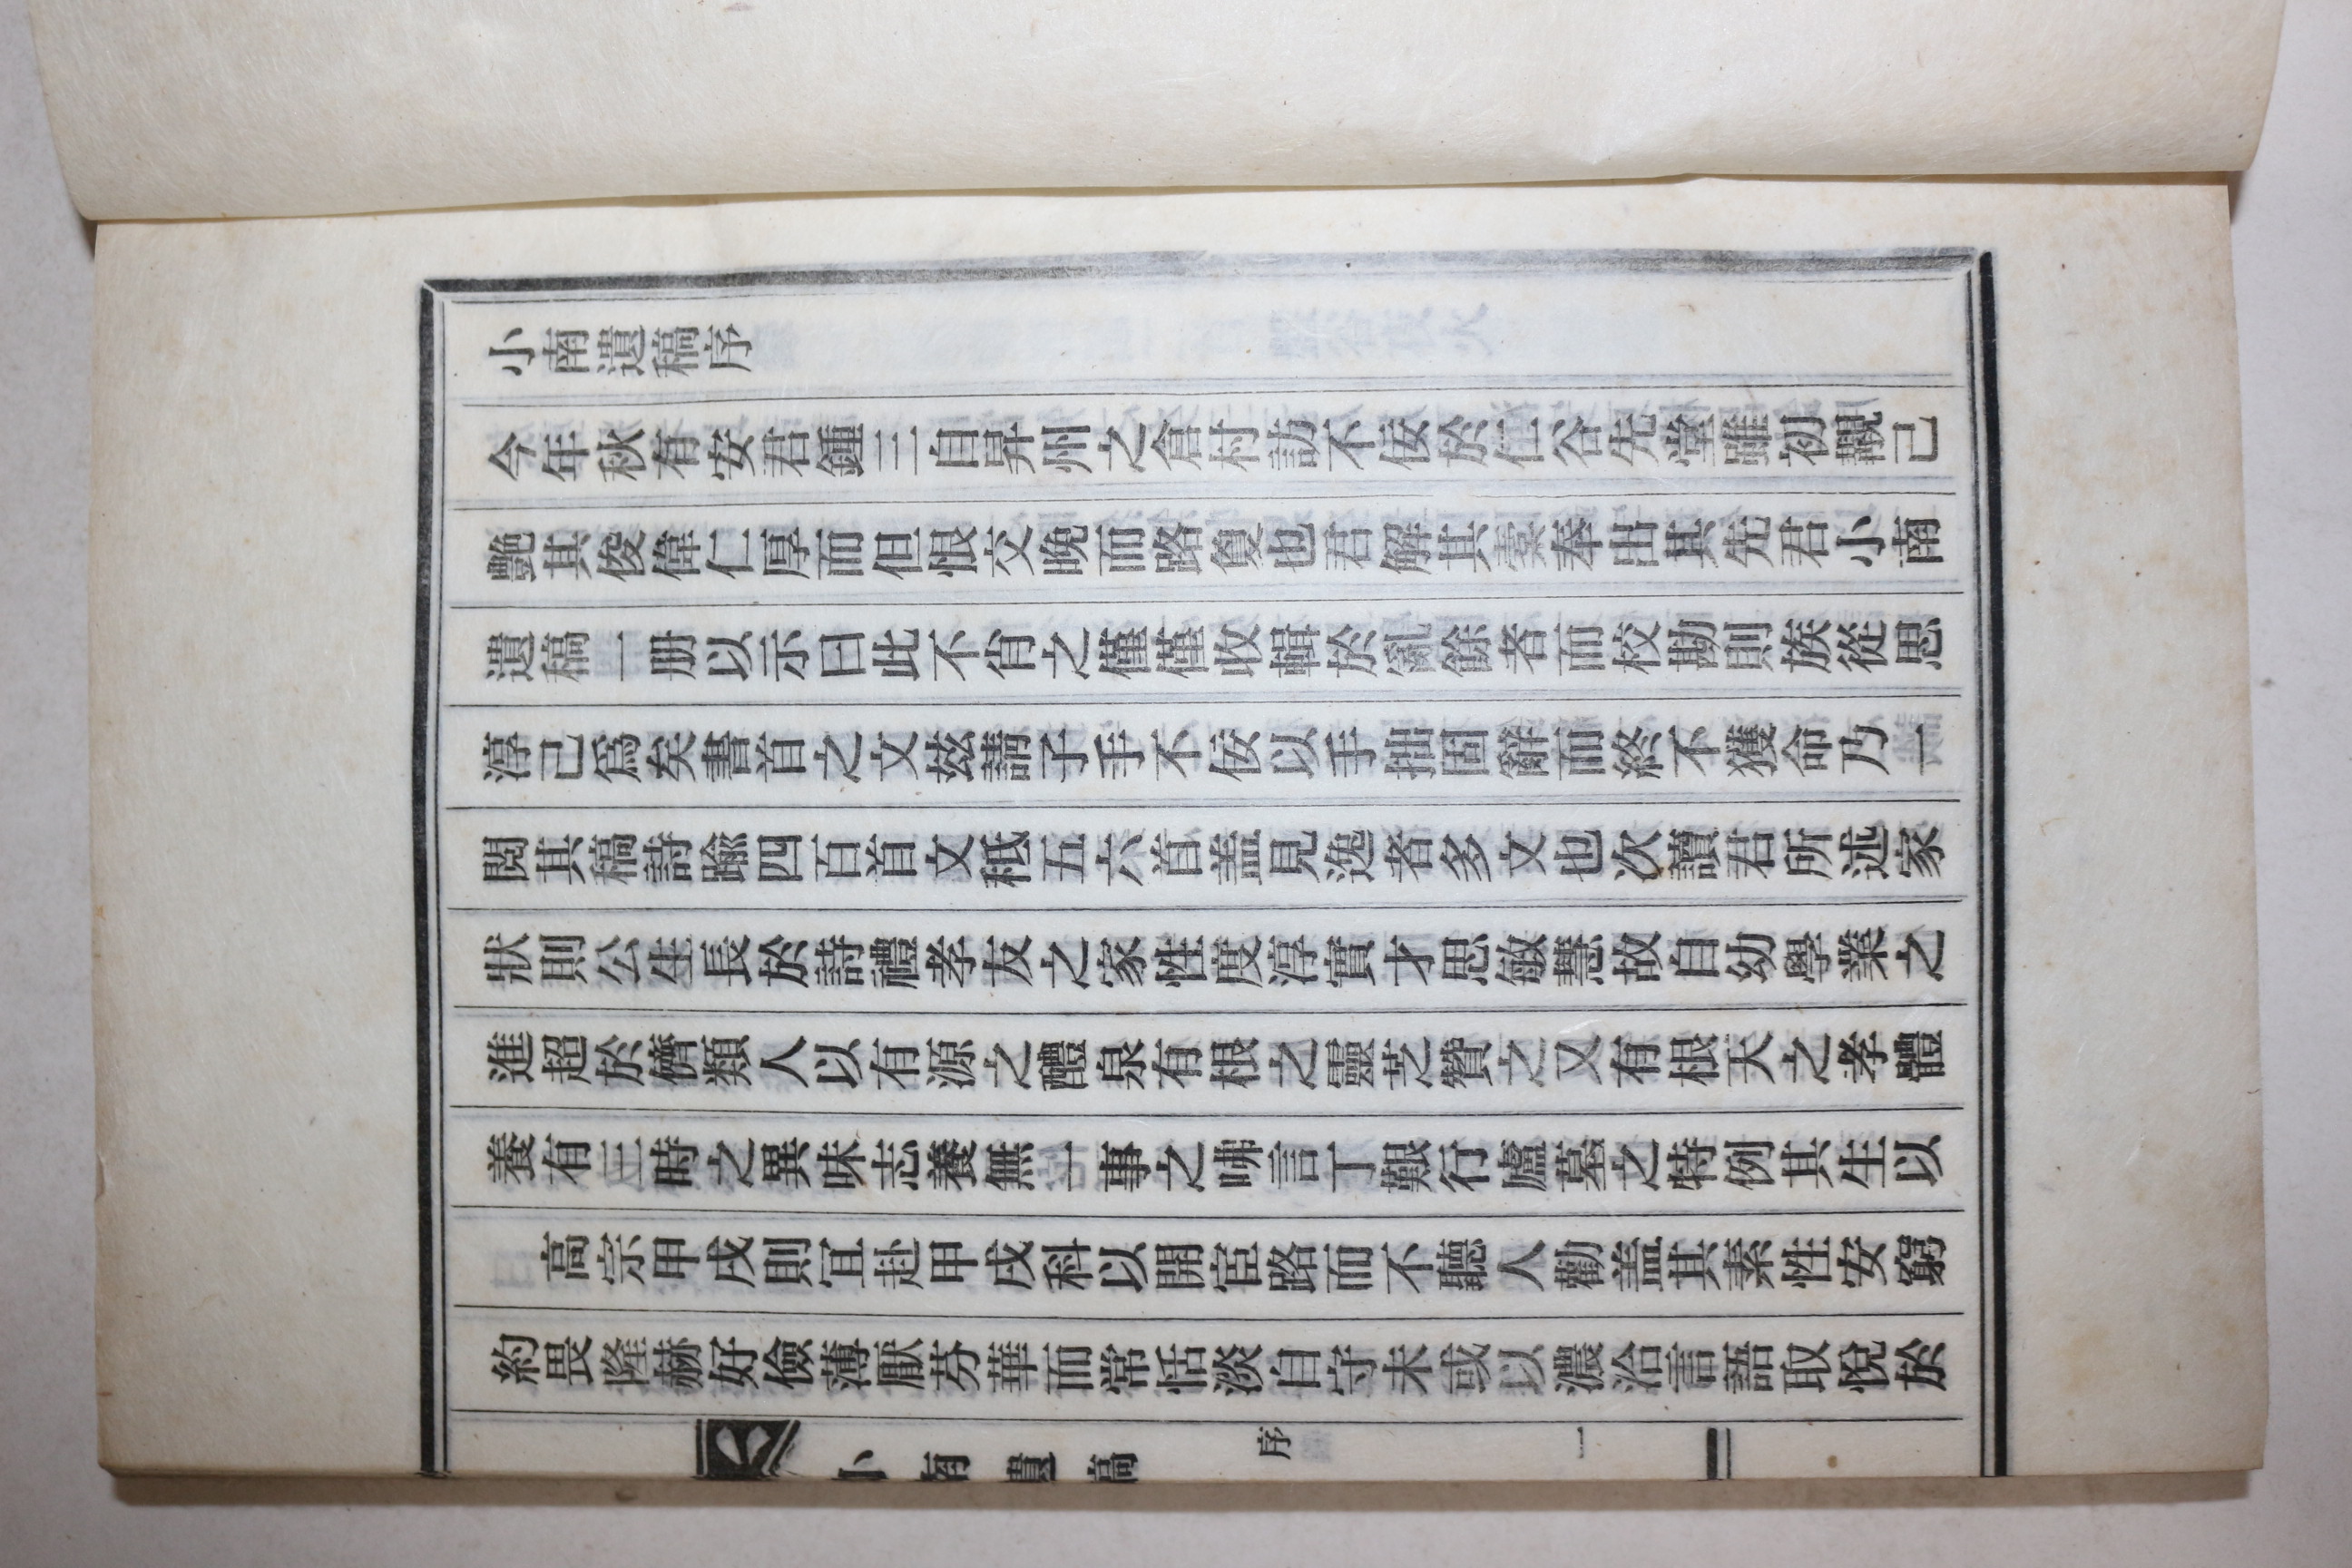 小南遺稿序
今年秋有安君鍾三自昇州之倉村訪不佞於仁谷先堂雖初覯己
艶其俊偉仁厚而但恨交晚而路敻也君解其槖奉出其先君小南
遺稿一册以示曰此不肖之僅僅收輯於亂餘者而校勘則族從思
淳己爲矣書首之文玆請子手不佞以手拙固辭而終不獲命乃一
閱其稿詩踰四百首文秪五六首盖見逸者多文也次讀君所述家
狀則公生長於詩禮孝友之家性度淳實才思敏慧故自幼學業之
進超於儕類人以有源之醴泉有根之靈芝贊之又有根天之孝體
養有三時之異味志養無一事之咈言丁艱行廬墓之特例其生以
高宗甲戌則冝赴甲戌科以開宦路而不聽人勸盖其素性安窮
約畏隆赫好儉薄厭芬華而常恬淡自守未或以濃洽言語取悅於
小南遺稿 序 一